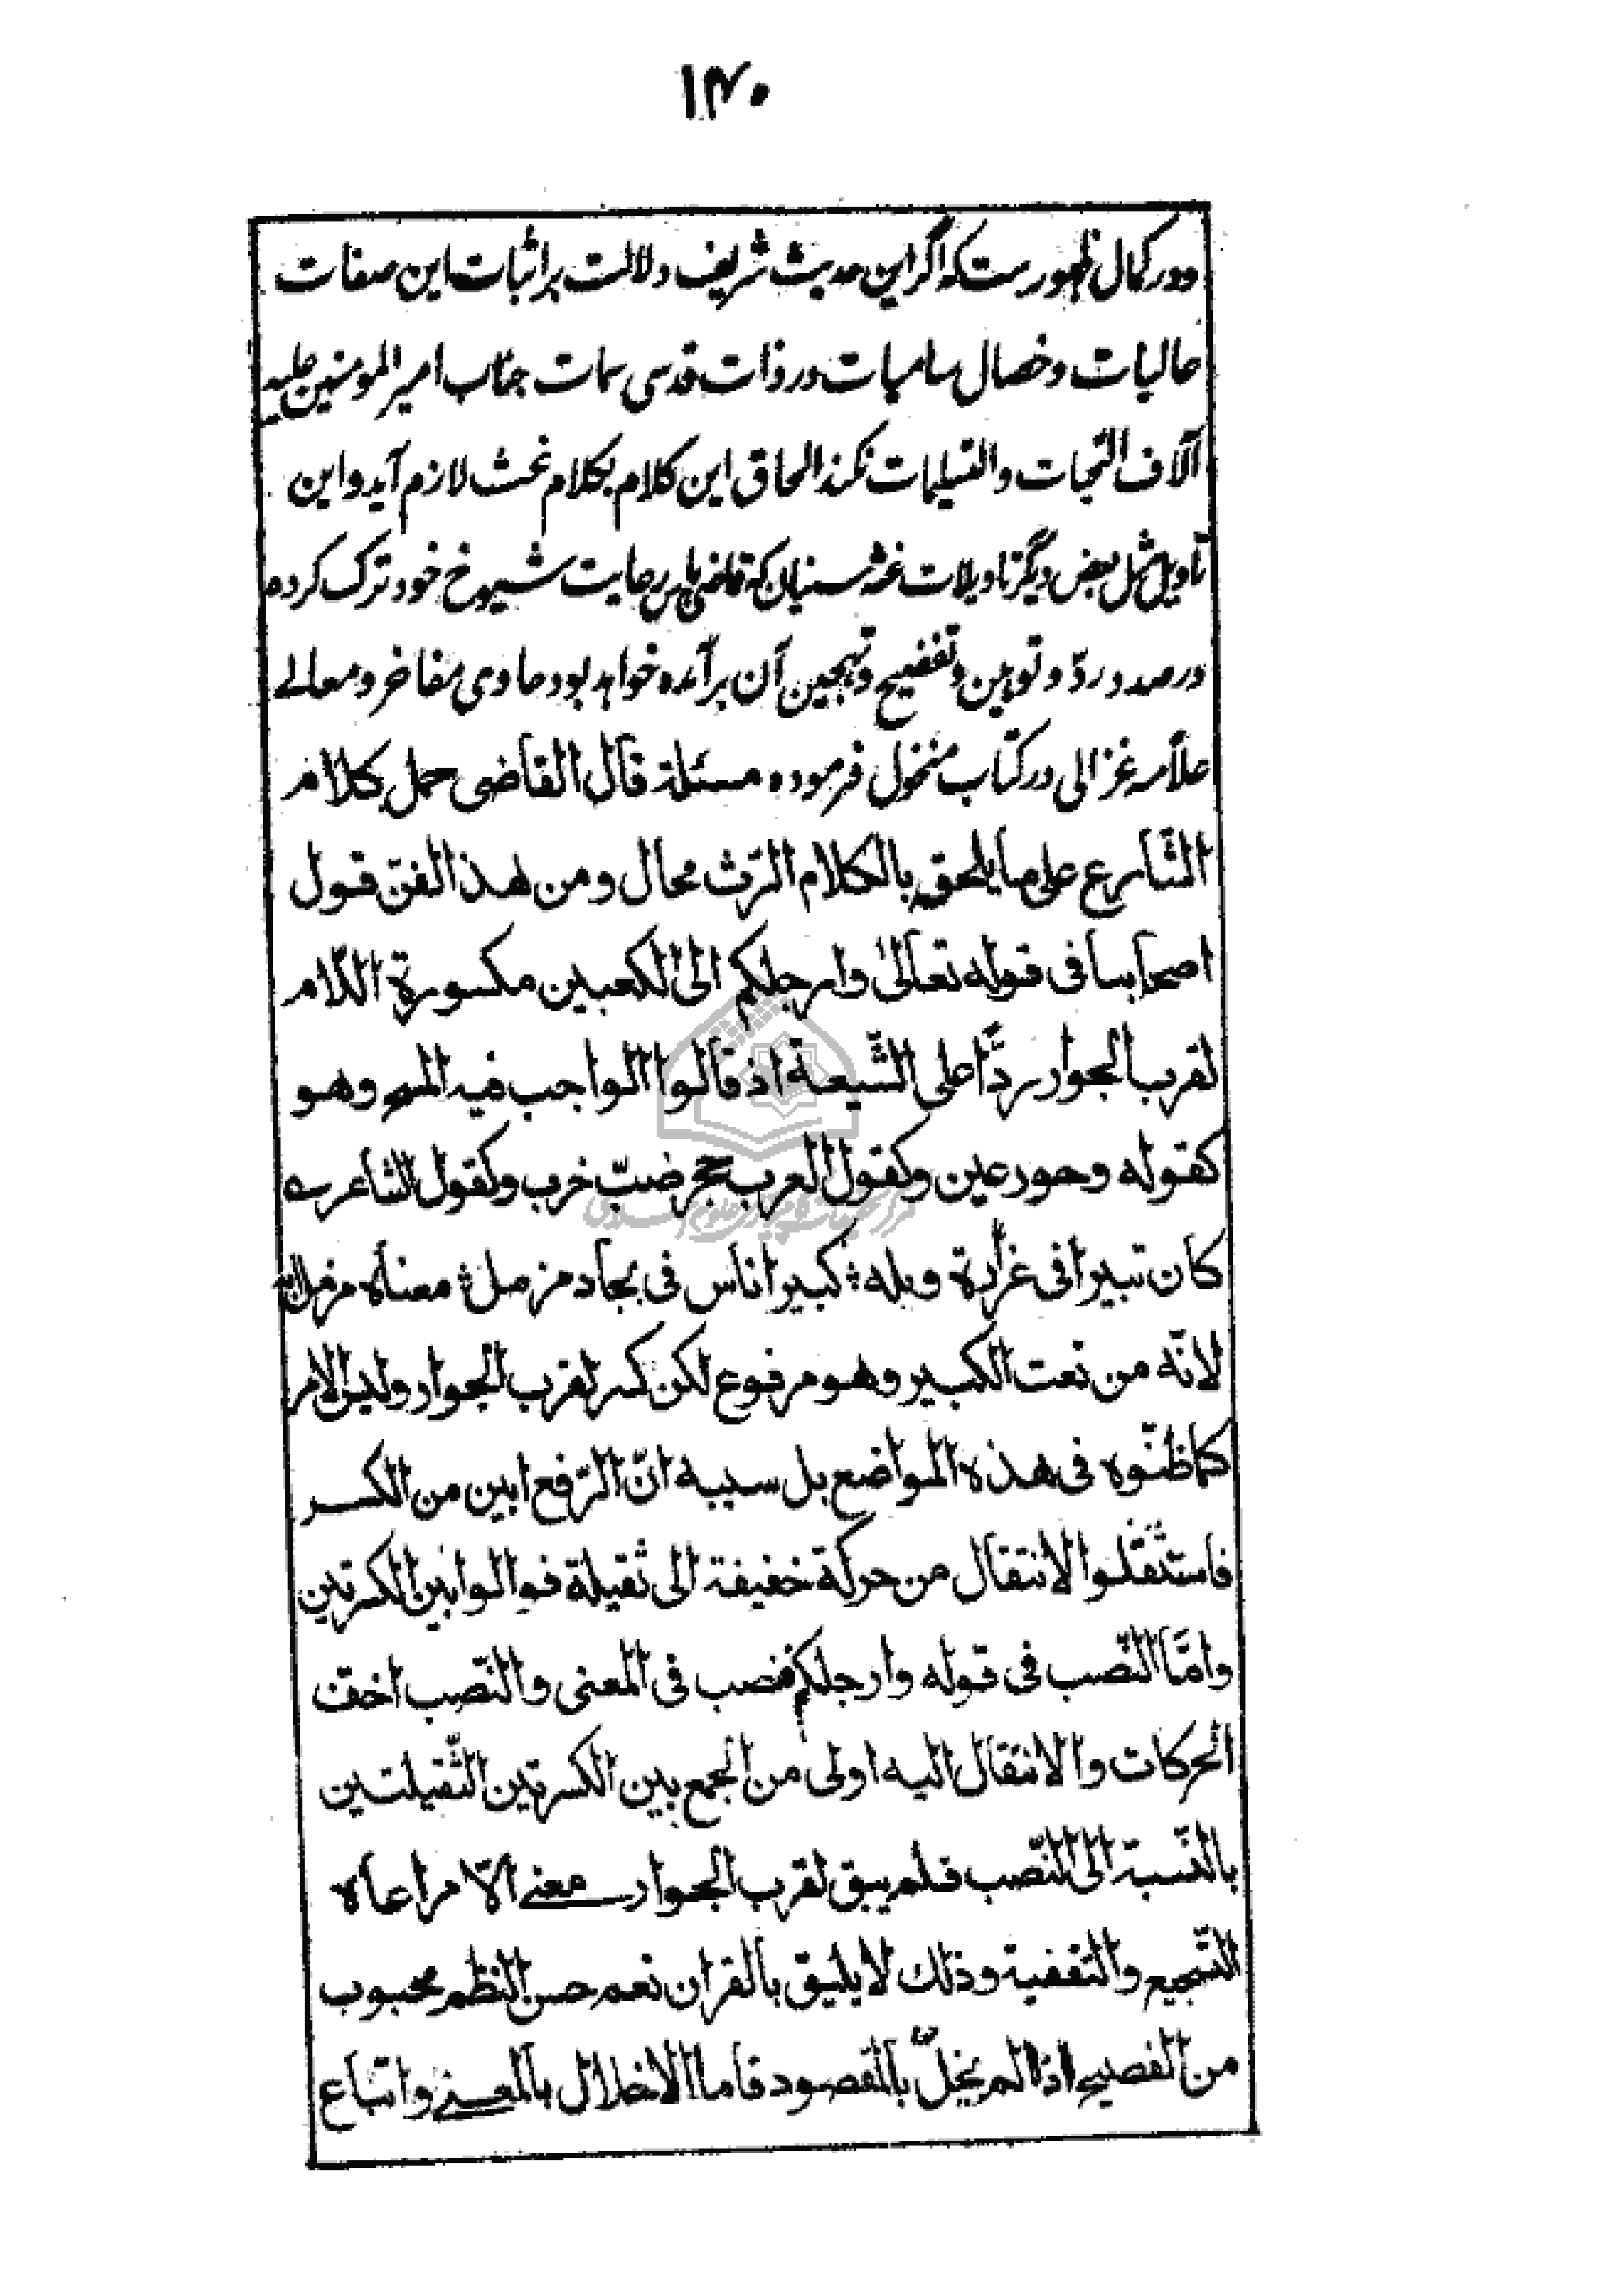 ۱۴۰
ودر کمال ظهورست که اگر این حدیث شریف دلالت بر اثبات این صفات
عالیات وخصال سامیات در ذات قدسی سمات جناب امیر المومنین علیه
آلاف التحیات والتسلیمات نکند الحاق این کلام بکلام غث لازم آید واین
تاویل مثل بعض دیگر تاویلات غثه سنیان که رعایت شیوخ خود ترک کرده
در صدد ردّ و توهین وتفضیح وتهجین آن برآمده خواهد بود حاوی مفاخر ومعالے
علامه غزالی در کتاب منخول فرموده مسئلة قال القاضی حمل کلام
الشارع علی ما یلحقه بالکلام الرّث محال ومن هذا الفنّ قول
اصحابنا فی قوله تعالیٰ وارجلکم الی الکعبین مکسورة اللّام
لقرب الجوار ردًّا علی الشّیعة اذ قالوا الواجب فیه المسح وهو
کقوله وحور عین وکقول العرب جحر ضبّ خرب وکقول الشاعر ے
کان ثبیرا فی عرانة وبله ؛ کبیر اناس فی بجاد مزمل ؛ معناه مزمل
لانّه من نعت الکبیر وهو مرفوع لکن کسر لقرب الجوار ولیس الامر
کما ظنّوه فی هذه المواضع بل سببه انّ الرّفع ابین من الکسر
فاستثقلوا الانتقال من حرکة خفیفة الی ثقیلة فوالوا بین الکسرتین
وامّا النّصب فی قوله وارجلکم فنصب فی المعنی والنّصب اخفّ
الحرکات والانتقال الیه اولی من الجمع بین الکسرتین الثّقیلتین
بالنّسبة الی النّصب فلم یبق لقرب الجوار معنے الّا مراعاه
التسجیع والتقفیة وذلك لا یلیق بالقران نعم حسن النظم محبوب
من الفصیح اذا لم یخلّ بالمقصود فاما الاخلال بالمعنے واتباع